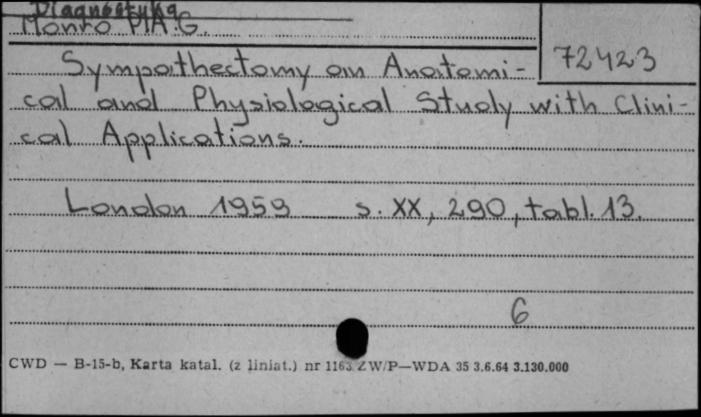 Diagnostyka
Monro P.A.G.
72423
Sympathectomy an Anatomi-
cal and Physiological Study with Clini-
cal Applications.
London 1959 s. XX, 290, tabl. 13.
6
CWD — B-15-b, Karta katal. (z liniat.) nr 1163 ZW/P—WDA 35 3.6.64 3.130.000